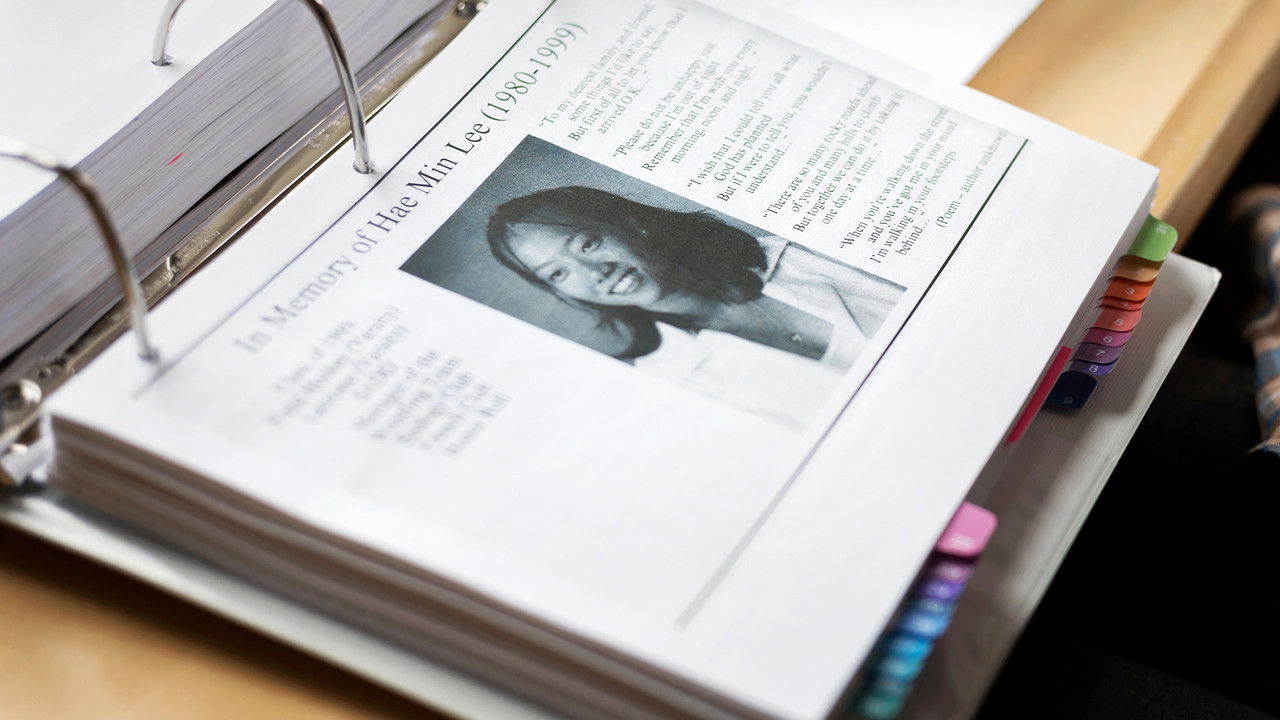 In Memory of Hae Min Lee (1980-1999)
Class of 1999
"To my dearest family and friend,
some things I'd like to say,
But first of all to let you know that I
arrived O.K..."
"Please do not be unhappy just
because I'm out of sight
Remember that I'm with you every
morning, noon, and night..."
"I wish that I could tell you all what
God has planned
But if I were to tell you, you wouldn't
understand...
"There are so many rocky roads ahead
of you and many hills to climb
But together we can do it by taking
one day at a time..."
"When you're walking down the street
and you've got me in your mind
I'm walking in your footsteps
behind...
(Poem – author unknown)
3
4
5
6
7
8
9